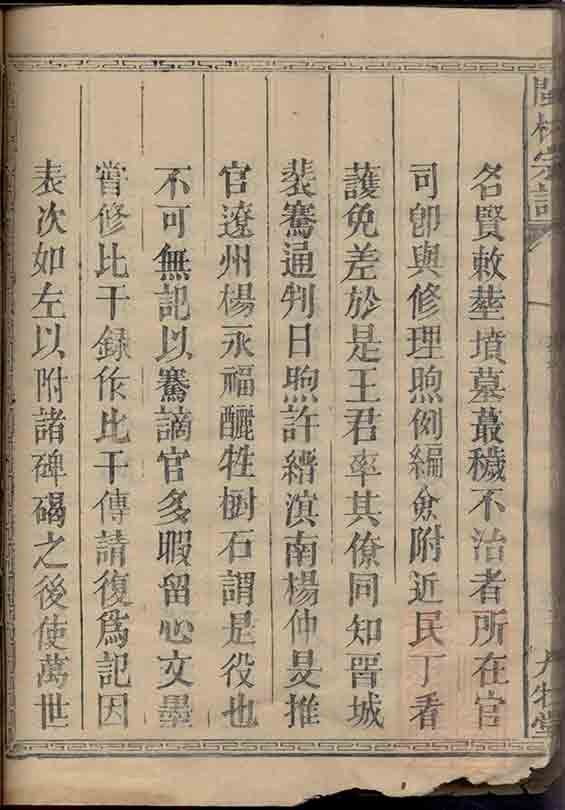 名賢敕塟墳墓蕞穢不治者所在官
司卽與修理煦例編僉附近民丁看
護免差於是王君率其僚同知晋城
裴騫通判日煦許縉滇南楊仲旻推
官遼州楊永福釃牲樹石謂是役也
不可無記以騫謫官多暇留心文墨
嘗修比干録作比干傳請復爲記因
表次如左以附諸碑碣之後使萬世